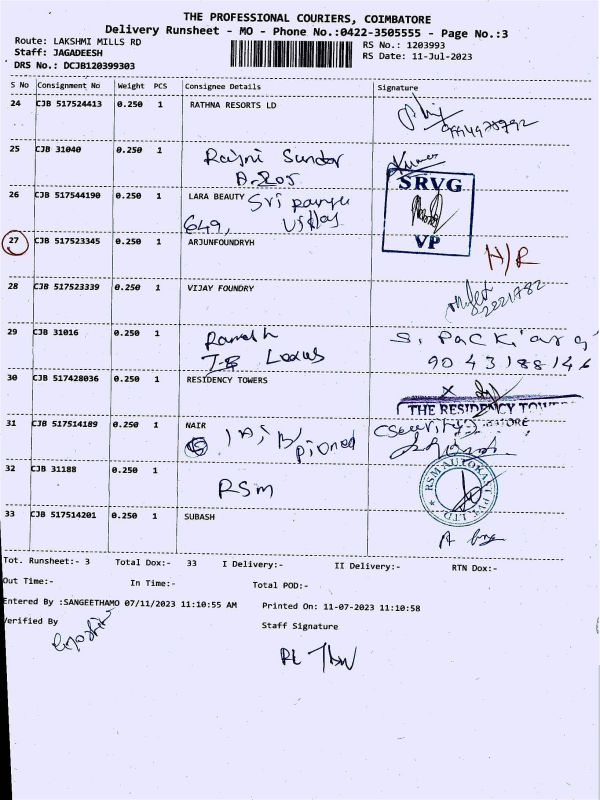 THE PROFESSIONAL COURIERS, COIMBATORE
Delivery Runsheet - MO - Phone No.:0422-3505555 - Page No.:3
Route: LAKSHMI MILLS RD RS No.: 1203993
Staff: JAGADEESH RS Date: 11-Jul-2023
DRS No.: DCJB120399303
S No Consignment No Weight PCS Consignee Details Signature
24 CJB 517524413 0.250 1 RATHNA RESORTS LD
25 CJB 31040 0.250 1 Rajni Sundar
Kumar
26 CJB 517544190 0.250 1 LARA BEAUTY Sri
649, Villas
SRVG
VP
27 CJB 517523345 0.250 1 ARJUNFOUNDRYH
H/R
28 CJB 517523339 0.250 1 VIJAY FOUNDRY
29 CJB 31016 0.250 1 Ramesh
Lexus
9043188146
30 CJB 517428036 0.250 1 RESIDENCY TOWERS
THE RESIDENCY
31 CJB 517514189 0.250 1 NAIR
Security
32 CJB 31188 0.250 1
RSM
RSM AUTOKAST PVT. LTD.
33 CJB 517514201 0.250 1 SUBASH
Tot. Runsheet:- 3 Total Dox:- 33 I Delivery:- II Delivery:- RTN Dox:-
Out Time:- In Time:- Total POD:-
Entered By :SANGEETHAMO 07/11/2023 11:10:55 AM Printed On: 11-07-2023 11:10:58
Verified By Staff Signature